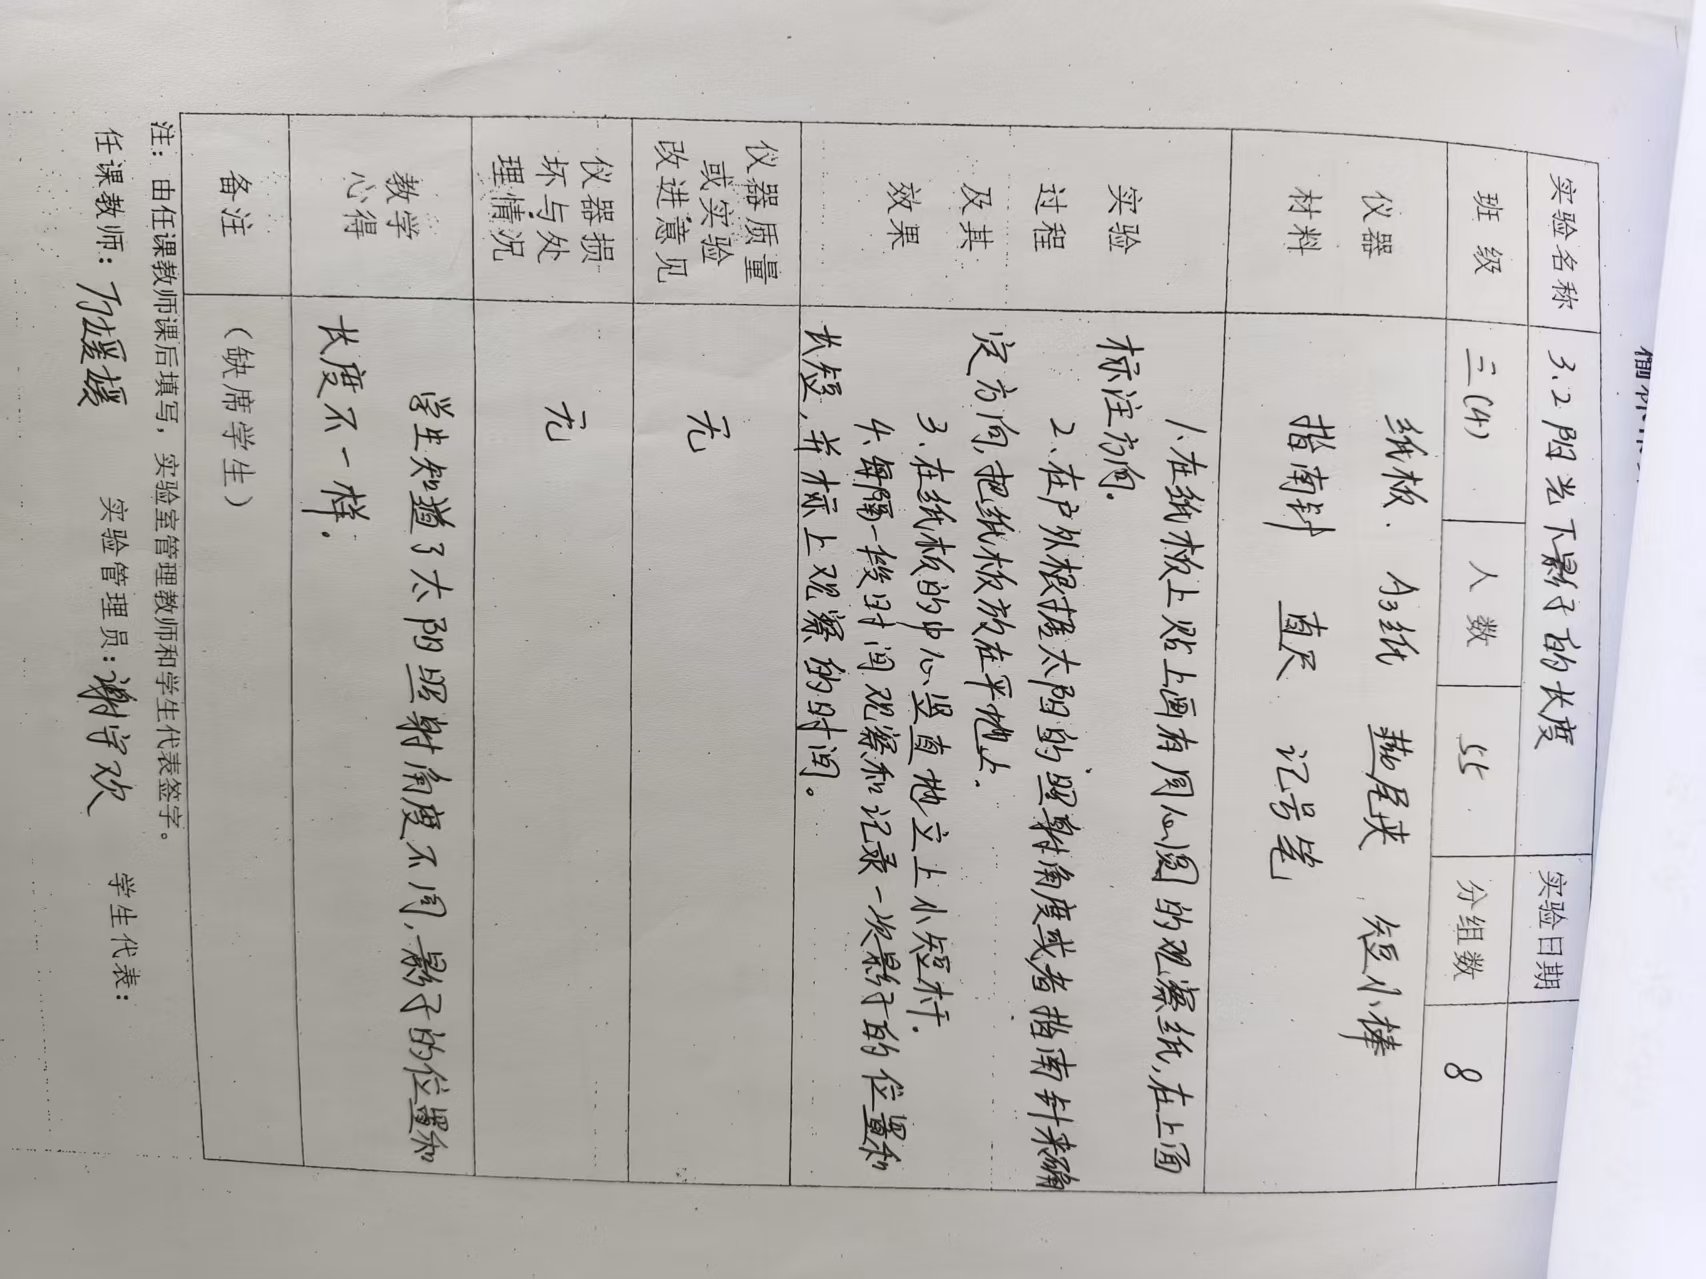 实验名称 3.2阳光下影子的长度 实验日期
班级 三(4) 人数 55 分组数 8
仪器 纸板. A3纸 燕尾夹 短小棒
材料 指南针 直尺 记号笔
实验 1.在纸板上贴上画有同心圆的观察纸,在上面
标注方向.
过程 2、在户外根据太阳的照射角度或者指南针来确
及其 定方向,把纸板放在平地上.
3、在纸板的中心竖直地立上小短杆.
效果 4、每隔一段时间观察和记录一次影子的位置和
长短,并标上观察的时间。
仪器质量
或实验 无
改进意见
仪器损
坏与处 无
理情况
教学 学生知道了太阳照射角度不同,影子的位置和
心得 长度不一样.
备注 (缺席学生)
注:由任课教师课后填写,实验室管理教师和学生代表签字。
任课教师: 万媛媛 实验管理员: 谢宇欢 学生代表: